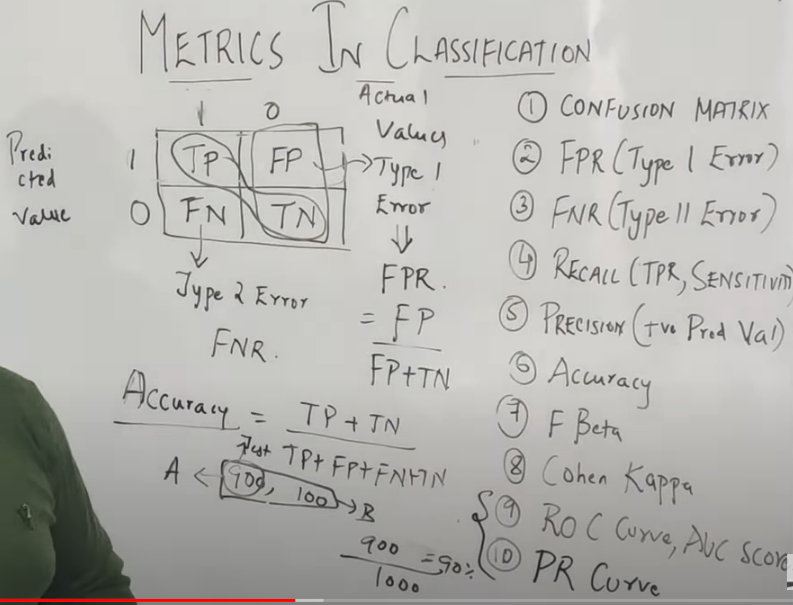 METRICS IN CLASSIFICATION
1 0
Actual
Values
Predi
cted
Value
1 TP FP
0 FN TN
Type 1
Error
FPR.
= FP
FP+TN
Type 2 Error
FNR.
Accuracy = TP + TN
TP+ FP+FN+TN
Test
A 900, 100 B
900 = 90%
1000
① CONFUSION MATRIX
② FPR (Type I Error)
③ FNR (Type II Error)
④ RECALL (TPR, SENSITIVITY
⑤ PRECISION (+ve Pred Val)
⑥ Accuracy
⑦ F Beta
⑧ Cohen Kappa
⑨ ROC Curve, AUC SCORE
⑩ PR Curve